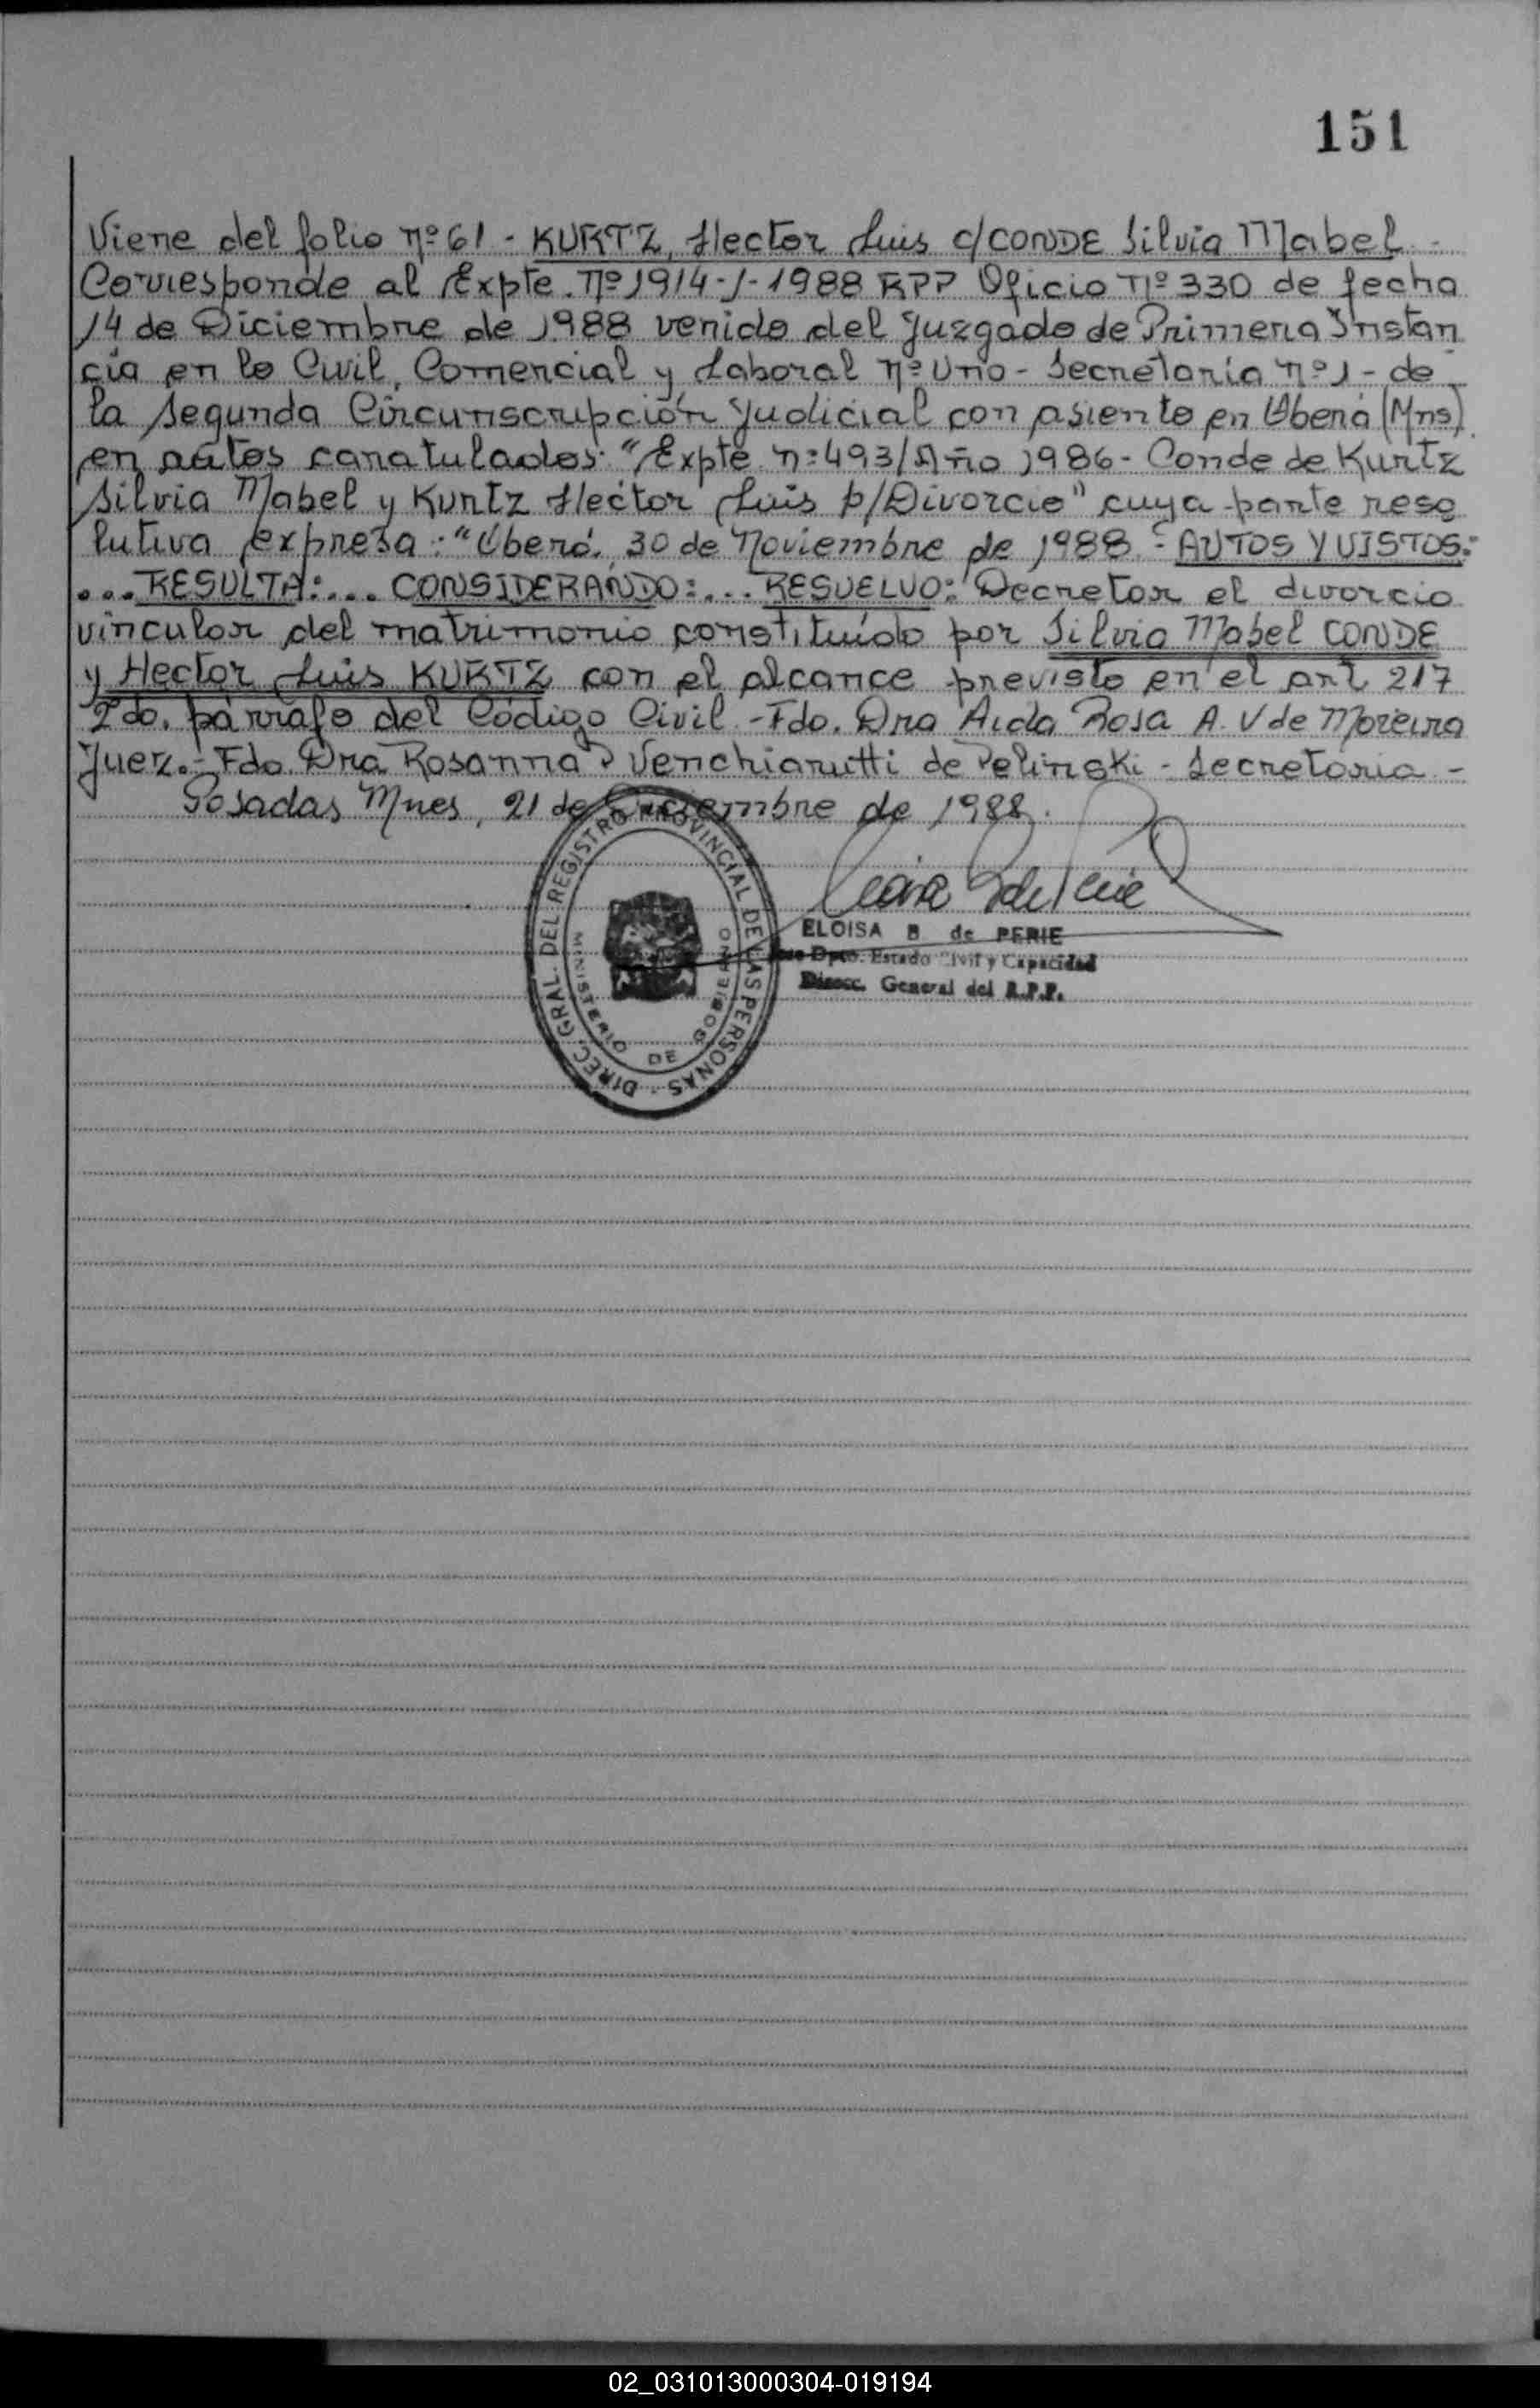 151
Viene del folio nº 61 - KURTZ, Hector Luis c/CONDE Silvia Mabel -
Corresponde al Expte. Nº 1914-J-1988 RPP Oficio Nº 330 de fecha
14 de Diciembre de 1988 venido del Juzgado de Primera Instan
cia en lo Civil, Comercial y Laboral nº Uno - Secretaría nº 1 - de
la Segunda Circunscripción Judicial con asiento en Oberá (Mns)
en autos caratulados: "Expte n: 493/Año 1986 - Conde de Kurtz
Silvia Mabel y Kurtz Hector Luis p/Divorcio" cuya parte reso
lutiva expresa: "Oberá, 30 de Noviembre de 1988 - AUTOS Y VISTOS:
...RESULTA:.... CONSIDERANDO:... RESUELVO: Decretar el divorcio
vincular del matrimonio constituído por Silvia Mabel CONDE
y Hector Luis KURTZ con el alcance previsto en el art 217
2do. párrafo del Código Civil - Fdo. Dra Aida Rosa A. V de Moreira
Juez. - Fdo. Dra Rosanna P Venchiarutti de Pelinski - Secretaria -
Posadas Mnes, 21 de Diciembre de 1988.
DIREC. GRAL. DEL REGISTRO PROVINCIAL DE LAS PERSONAS
MINISTERIO DE GOBIERNO
ELOISA B de PERIE
Dpto. Estado Civil y Capacidad
Direcc. General del R.P.P.
02_031013000304-019194